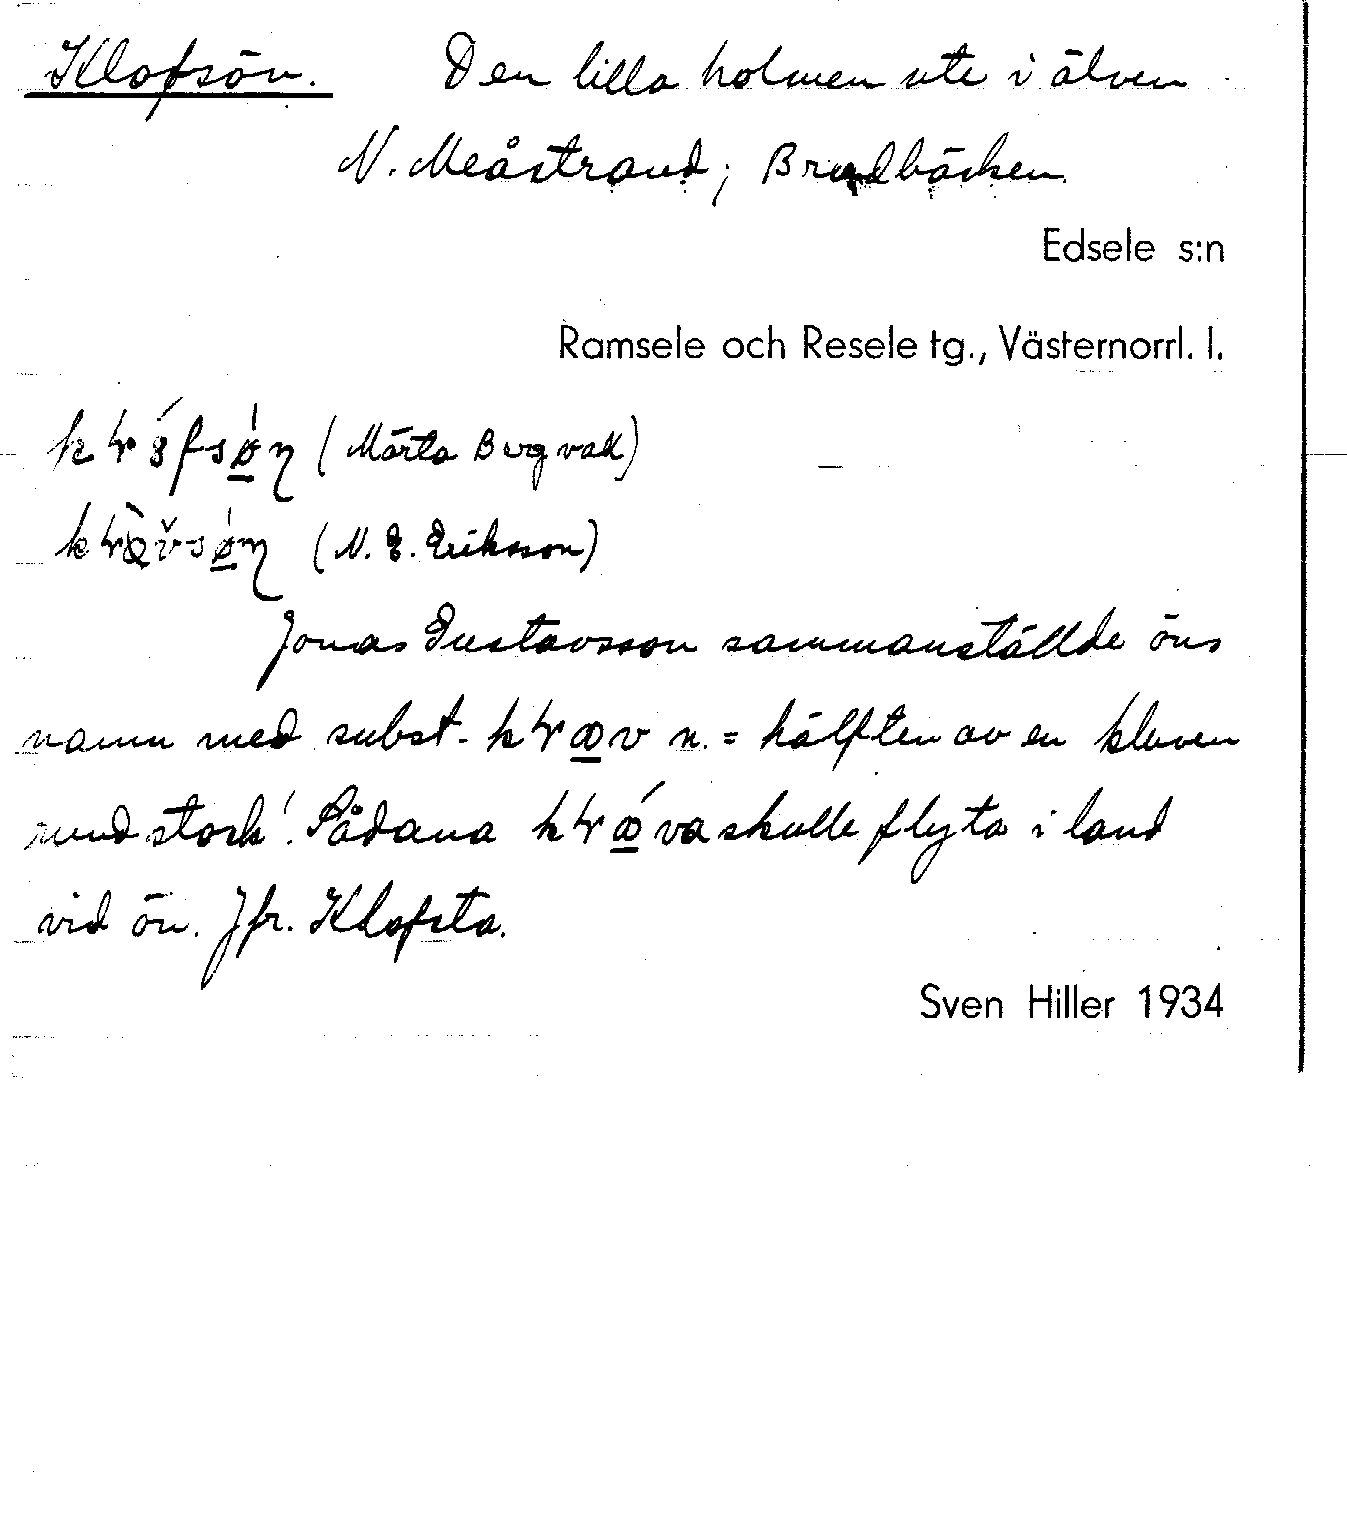 Klofsön. Den lilla holmen ute i älven
N. Meåstrand; Brudbäcken.
Edsele s:n
Ramsele och Resele tg., Västernorrl. l.
(Märta Bergvall)
(N. E. Eriksson)
Jonas Gustavsson sammanställde öns
namn med subst. n. = hälften av en kluven
rund stock! Sådana skulle flyta i land
vid ön. Jfr. Klofsta.
Sven Hiller 1934